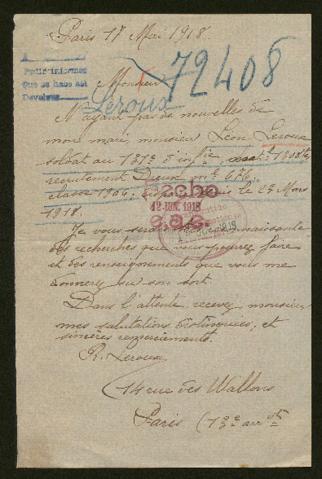 Paris 17 Mai 1918
Monsieur
72408
Leroux
N'ayant pas de nouvelles de
mon mari, monsieur Léon Leroux
soldat au
recrutement Dreux, nle 676,
classe 1904, disparu depuis le 27 Mars
1918.
Recho
12 JUN. 1918
Je vous serais reconnaissante
des recherches que vous pourrez faire
et des renseignements que vous me
donnerez sur son sort.
Dans l'attente, recevez, monsieur
mes salutations distinguées, et
sincères remerciements.
R. Leroux
14 rue des Wallons
Paris (13e arrdt